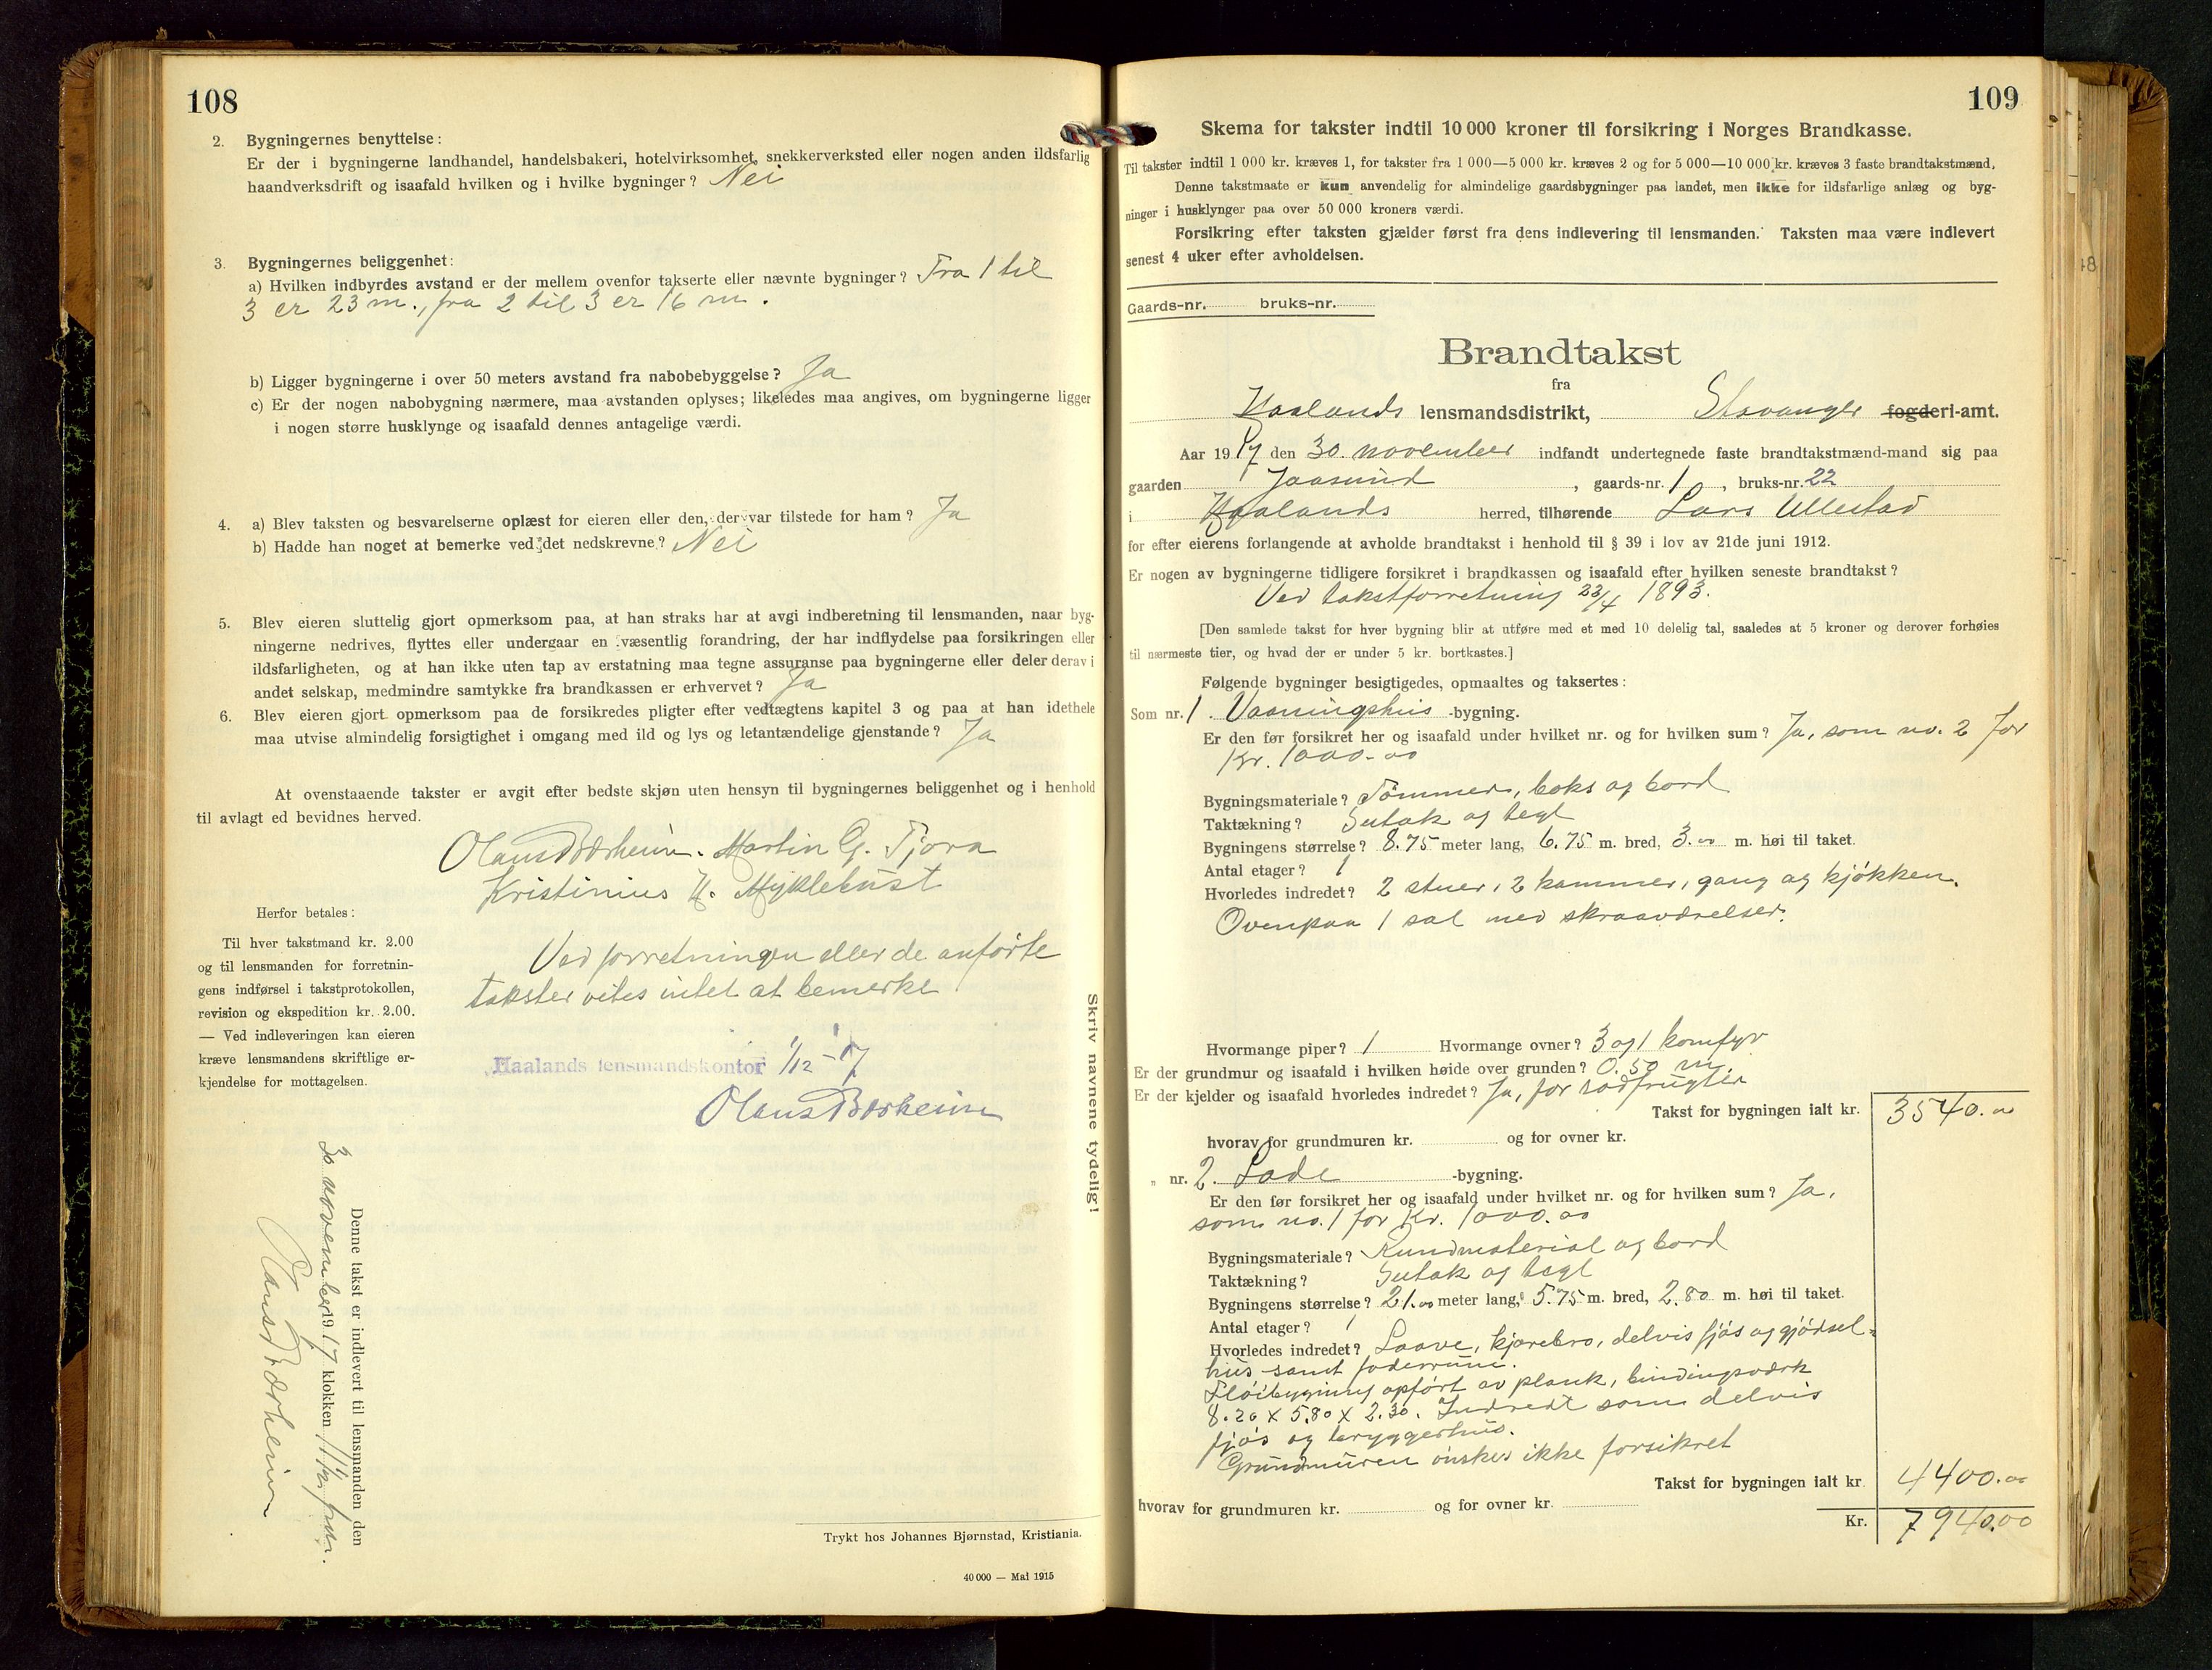 108
2. Bygningernes benyttelse:
Er der i bygningerne landhandel, handelsbakeri, hotelvirksomhet, snekkerverksted eller nogen anden ildsfarlig
haandverksdrift og isaafald hvilken og i hvilke bygninger? Nei
3. Bygningernes beliggenhet:
a) Hvilken indbyrdes avstand er der mellem ovenfor takserte eller nævnte bygninger? Fra 1 til
3 er 23 m., fra 2 til 3 er 16 m.
b) Ligger bygningerne i over 50 meters avstand fra nabobebyggelse? Ja
c) Er der nogen nabobygning nærmere, maa avstanden oplyses; likeledes maa angives, om bygningerne ligger
i nogen større husklynge og isaafald dennes antagelige værdi.
4. a) Blev taksten og besvarelserne oplæst for eieren eller den, der var tilstede for ham? Ja
b) Hadde han noget at bemerke ved det nedskrevne? Nei
5. Blev eieren sluttelig gjort opmerksom paa, at han straks har at avgi indberetning til lensmanden, naar byg-
ningerne nedrives, flyttes eller undergaar en væsentlig forandring, der har indflydelse paa forsikringen eller
ildsfarligheten, og at han ikke uten tap av erstatning maa tegne assuranse paa bygningerne eller deler derav i
andet selskap, medmindre samtykke fra brandkassen er erhvervet? Ja
6. Blev eieren gjort opmerksom paa de forsikredes pligter efter vedtægtens kapitel 3 og paa at han idethele
maa utvise almindelig forsigtighet i omgang med ild og lys og letantændelige gjenstande? Ja
At ovenstaaende takster er avgit efter bedste skjøn uten hensyn til bygningernes beliggenhet og i henhold
til avlagt ed bevidnes herved.
Olaus Bærheim. Martin G. Tjora
Kristinius H. Myklebust
Herfor betales:
Til hver takstmand kr. 2.00
og til lensmanden for forretnin-
gens indførsel i takstprotokollen,
revision og ekspedition kr. 2.00.
— Ved indleveringen kan eieren
kræve lensmandens skriftlige er-
kjendelse for mottagelsen.
Ved forretningen eller de anførte
takster vites intet at bemerke
Haalands lensmandskontor 1/12 - 17
Olaus Bærheim
Skriv navnene tydelig!
Denne takst er indlevert til lensmanden den
30 november 1917 klokken 11 1/2 fm.
Olaus Bærheim
Trykt hos Johannes Bjørnstad, Kristiania.
40 000 — Mai 1915
109
Skema for takster indtil 10 000 kroner til forsikring i Norges Brandkasse.
Til takster indtil 1 000 kr. kræves 1, for takster fra 1 000—5 000 kr. kræves 2 og for 5 000—10 000 kr. kræves 3 faste brandtakstmænd.
Denne takstmaate er kun anvendelig for almindelige gaardsbygninger paa landet, men ikke for ildsfarlige anlæg og byg-
ninger i husklynger paa over 50 000 kroners værdi.
Forsikring efter taksten gjælder først fra dens indlevering til lensmanden. Taksten maa være indlevert
senest 4 uker efter avholdelsen.
Gaards-nr. bruks-nr.
Brandtakst
fra
Haalands lensmandsdistrikt, Stavanger fogderi-amt.
Aar 1917 den 30. november indfandt undertegnede faste brandtakstmænd-mand sig paa
gaarden Jaasund, gaards-nr. 1, bruks-nr. 22
i Haalands herred, tilhørende Lars Ullestad
for efter eierens forlangende at avholde brandtakst i henhold til § 39 i lov av 21de juni 1912.
Er nogen av bygningerne tidligere forsikret i brandkassen og isaafald efter hvilken seneste brandtakst?
Ved takstforretning 23/4 1893.
[Den samlede takst for hver bygning blir at utføre med et med 10 delelig tal, saaledes at 5 kroner og derover forhøies
til nærmeste tier, og hvad der er under 5 kr. bortkastes.]
Følgende bygninger besigtigedes, opmaaltes og taksertes:
Som nr. 1. Vaaningshus -bygning.
Er den før forsikret her og isaafald under hvilket nr. og for hvilken sum? Ja, som no. 2 for
Kr. 1000.00
Bygningsmateriale? Tömmer, boks og bord
Taktækning? Sutak og tegl
Bygningens størrelse? 8.75 meter lang, 6.75 m. bred, 3.00 m. høi til taket.
Antal etager? 1
Hvorledes indredet? 2 stuer, 2 kammer, gang og kjökken.
Ovenpaa 1 sal med skraaværelser.
Hvormange piper? 1 Hvormange ovner? 3 og 1 komfyr
Er der grundmur og isaafald i hvilken høide over grunden? 0.50 m.
Er der kjelder og isaafald hvorledes indredet? Ja, for rodfrugter
Takst for bygningen ialt kr. 3540.00
hvorav for grundmuren kr. og for ovner kr.
„ nr. 2. Lade -bygning.
Er den før forsikret her og isaafald under hvilket nr. og for hvilken sum? Ja,
som no. 1 for Kr. 1000.00
Bygningsmateriale? Rundmaterial og bord
Taktækning? Sutak og tegl
Bygningens størrelse? 21.00 meter lang, 5.75 m. bred, 2.80 m. høi til taket.
Antal etager? 1
Hvorledes indredet? Laave, kjørebro, delvis fjös og gjödsel-
hus samt foderrum.
Flöibygning opfört av plank, bindingsværk
8.20 x 5.80 x 2.30. Indredt som delvis
fjös og bryggerhus.
Grundmuren önskes ikke forsikret
Takst for bygningen ialt kr 4400.00
hvorav for grundmuren kr. og for ovner kr.
Kr. 7940.00